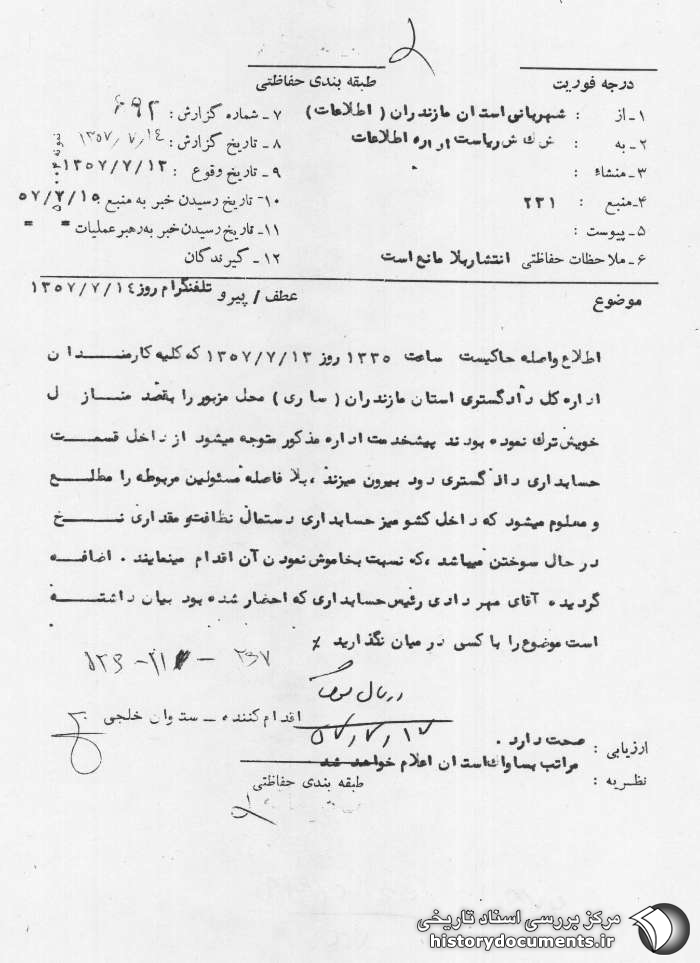 درجه فوریت
طبقه بندی حفاظتی
۱ـ از : شهربانی استان مازندران ( اطلاعات )
۲ـ به : ش ك ش ریاست اداره اطلاعات
۳ـ منشاء :
۴ـ منبع : ۲۳۱
۵ـ پیوست :
۶ـ ملاحظات حفاظتی انتشار بلا مانع است
۷ـ شماره گزارش : ۶۹۲
۸ـ تاریخ گزارش : ۱۳۵۷/۷/۱۴
۹ـ تاریخ وقوع : ۱۳۵۷/۷/۱۳
۱۰ـ تاریخ رسیدن خبر به منبع ۵۷/۷/۱۵
۱۱ـ تاریخ رسیدن خبر به رهبر عملیات = =
۱۲ـ گیرندگان
موضوع
عطف / پیرو تلفنگرام روز ۱۳۵۷/۷/۱۴
اطلاع واصله حاکیست ساعت ۱۳۳۵ روز ۱۳۵۷/۷/۱۳ که کلیه کارمنـــدان
اداره کل دادگستری استان مازندران ( ساری ) محل مزبور را بقصد منـازل
خویش ترك نموده بودند پیشخدمت اداره مذکور متوجه میشود از داخل قسمـت
حسابداری دادگستری دود بیرون میزند ، بلا فاصله مسئولین مربوطه را مطلــع
و معلوم میشود که داخل کشو میز حسابداری دستمال نظافت و مقداری نــخ
در حال سوختن میباشد ، که نسبت بخاموش نمودن آن اقدام مینمایند . اضافـه
گردیده آقای مهر دادی رئیس حسابداری که احضار شده بود بیان داشتـــه
است موضوع را با کسی در میان نگذارید ٪
اقدام کننده ــ ستوان خلجی
۵۷/۷/۱۷
ارزیابی : صحت دارد .
نظریه : مراتب بساواك استان اعلام خواهد شد
طبقه بندی حفاظتی
مرکز بررسی اسناد تاریخی
historydocuments.ir